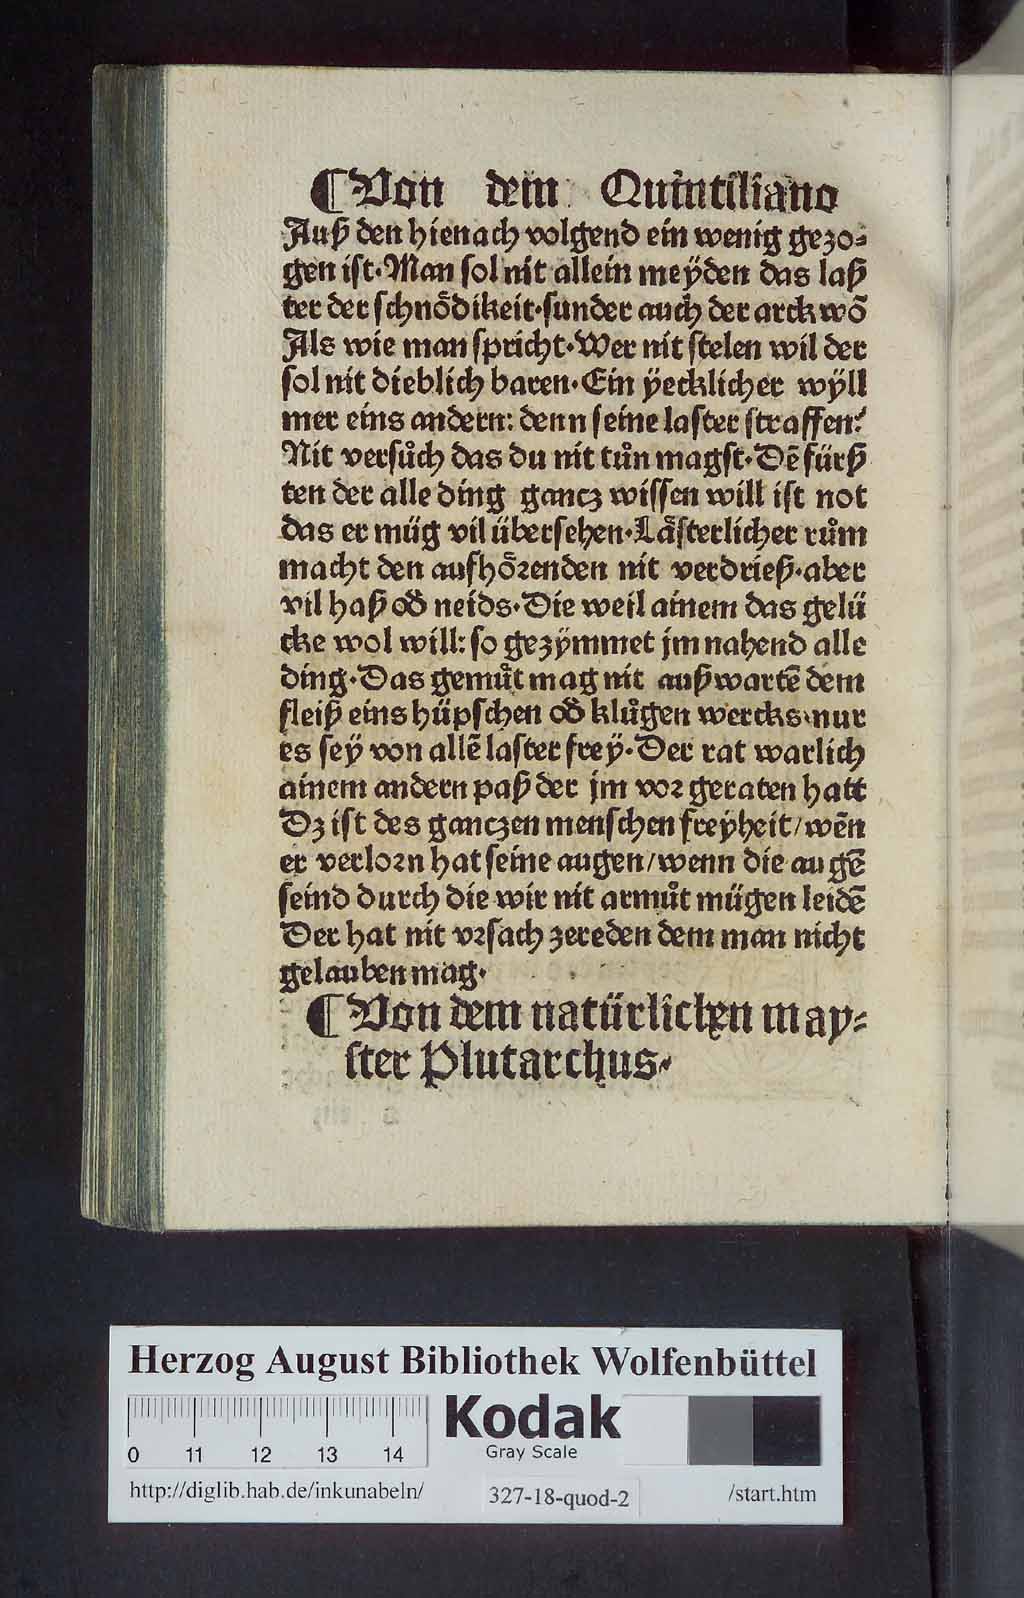 ¶ Von dem Quintiliano
Auß den hienach volgend ein wenig gezo⸗
gen ist·Man sol nit allein meÿden das laß
ter der schnoͤdikeit·sunder auch der arckwō
Als wie man spricht·Wer nit stelen wil der
sol nit dieblich baren·Ein ÿecklicher wÿll
mer eins andern: denn seine laster straffen?
Nit versuͦch das du nit tuͦn magst·Dē fürß
ten der alle ding gancz wissen will ist not
das er müg vil übersehen·Laͤsterlicher ruͦm
macht den aufhoͤꝛenden nit verdrieß·aber
vil haß od̄ neids·Die weil ainem das gelü
cke wol will: so gezÿmmet jm nahend alle
ding·Das gemuͤt mag nit außwartē dem
fleiß eins hüpschen od̄ kluͦgen wercks·nur
es seÿ von allē laster freÿ·Der rat warlich
ainem andern paß der jm voꝛ geraten hatt
Dz ist des ganczen menschen freÿheit/wēn
er verloꝛn hat seine augen/wenn die augē
seind durch die wir nit armuͦt mügen leidē
Der hat nit vꝛsach zereden dem man nicht
gelauben mag·
¶ Von dem natürlichen may⸗
ster Plutarchus·
Herzog August Bibliothek Wolfenbüttel
Kodak
Gray Scale
0 11 12 13 14
http://diglib.hab.de/inkunabeln/ 327-18-quod-2 /start.htm